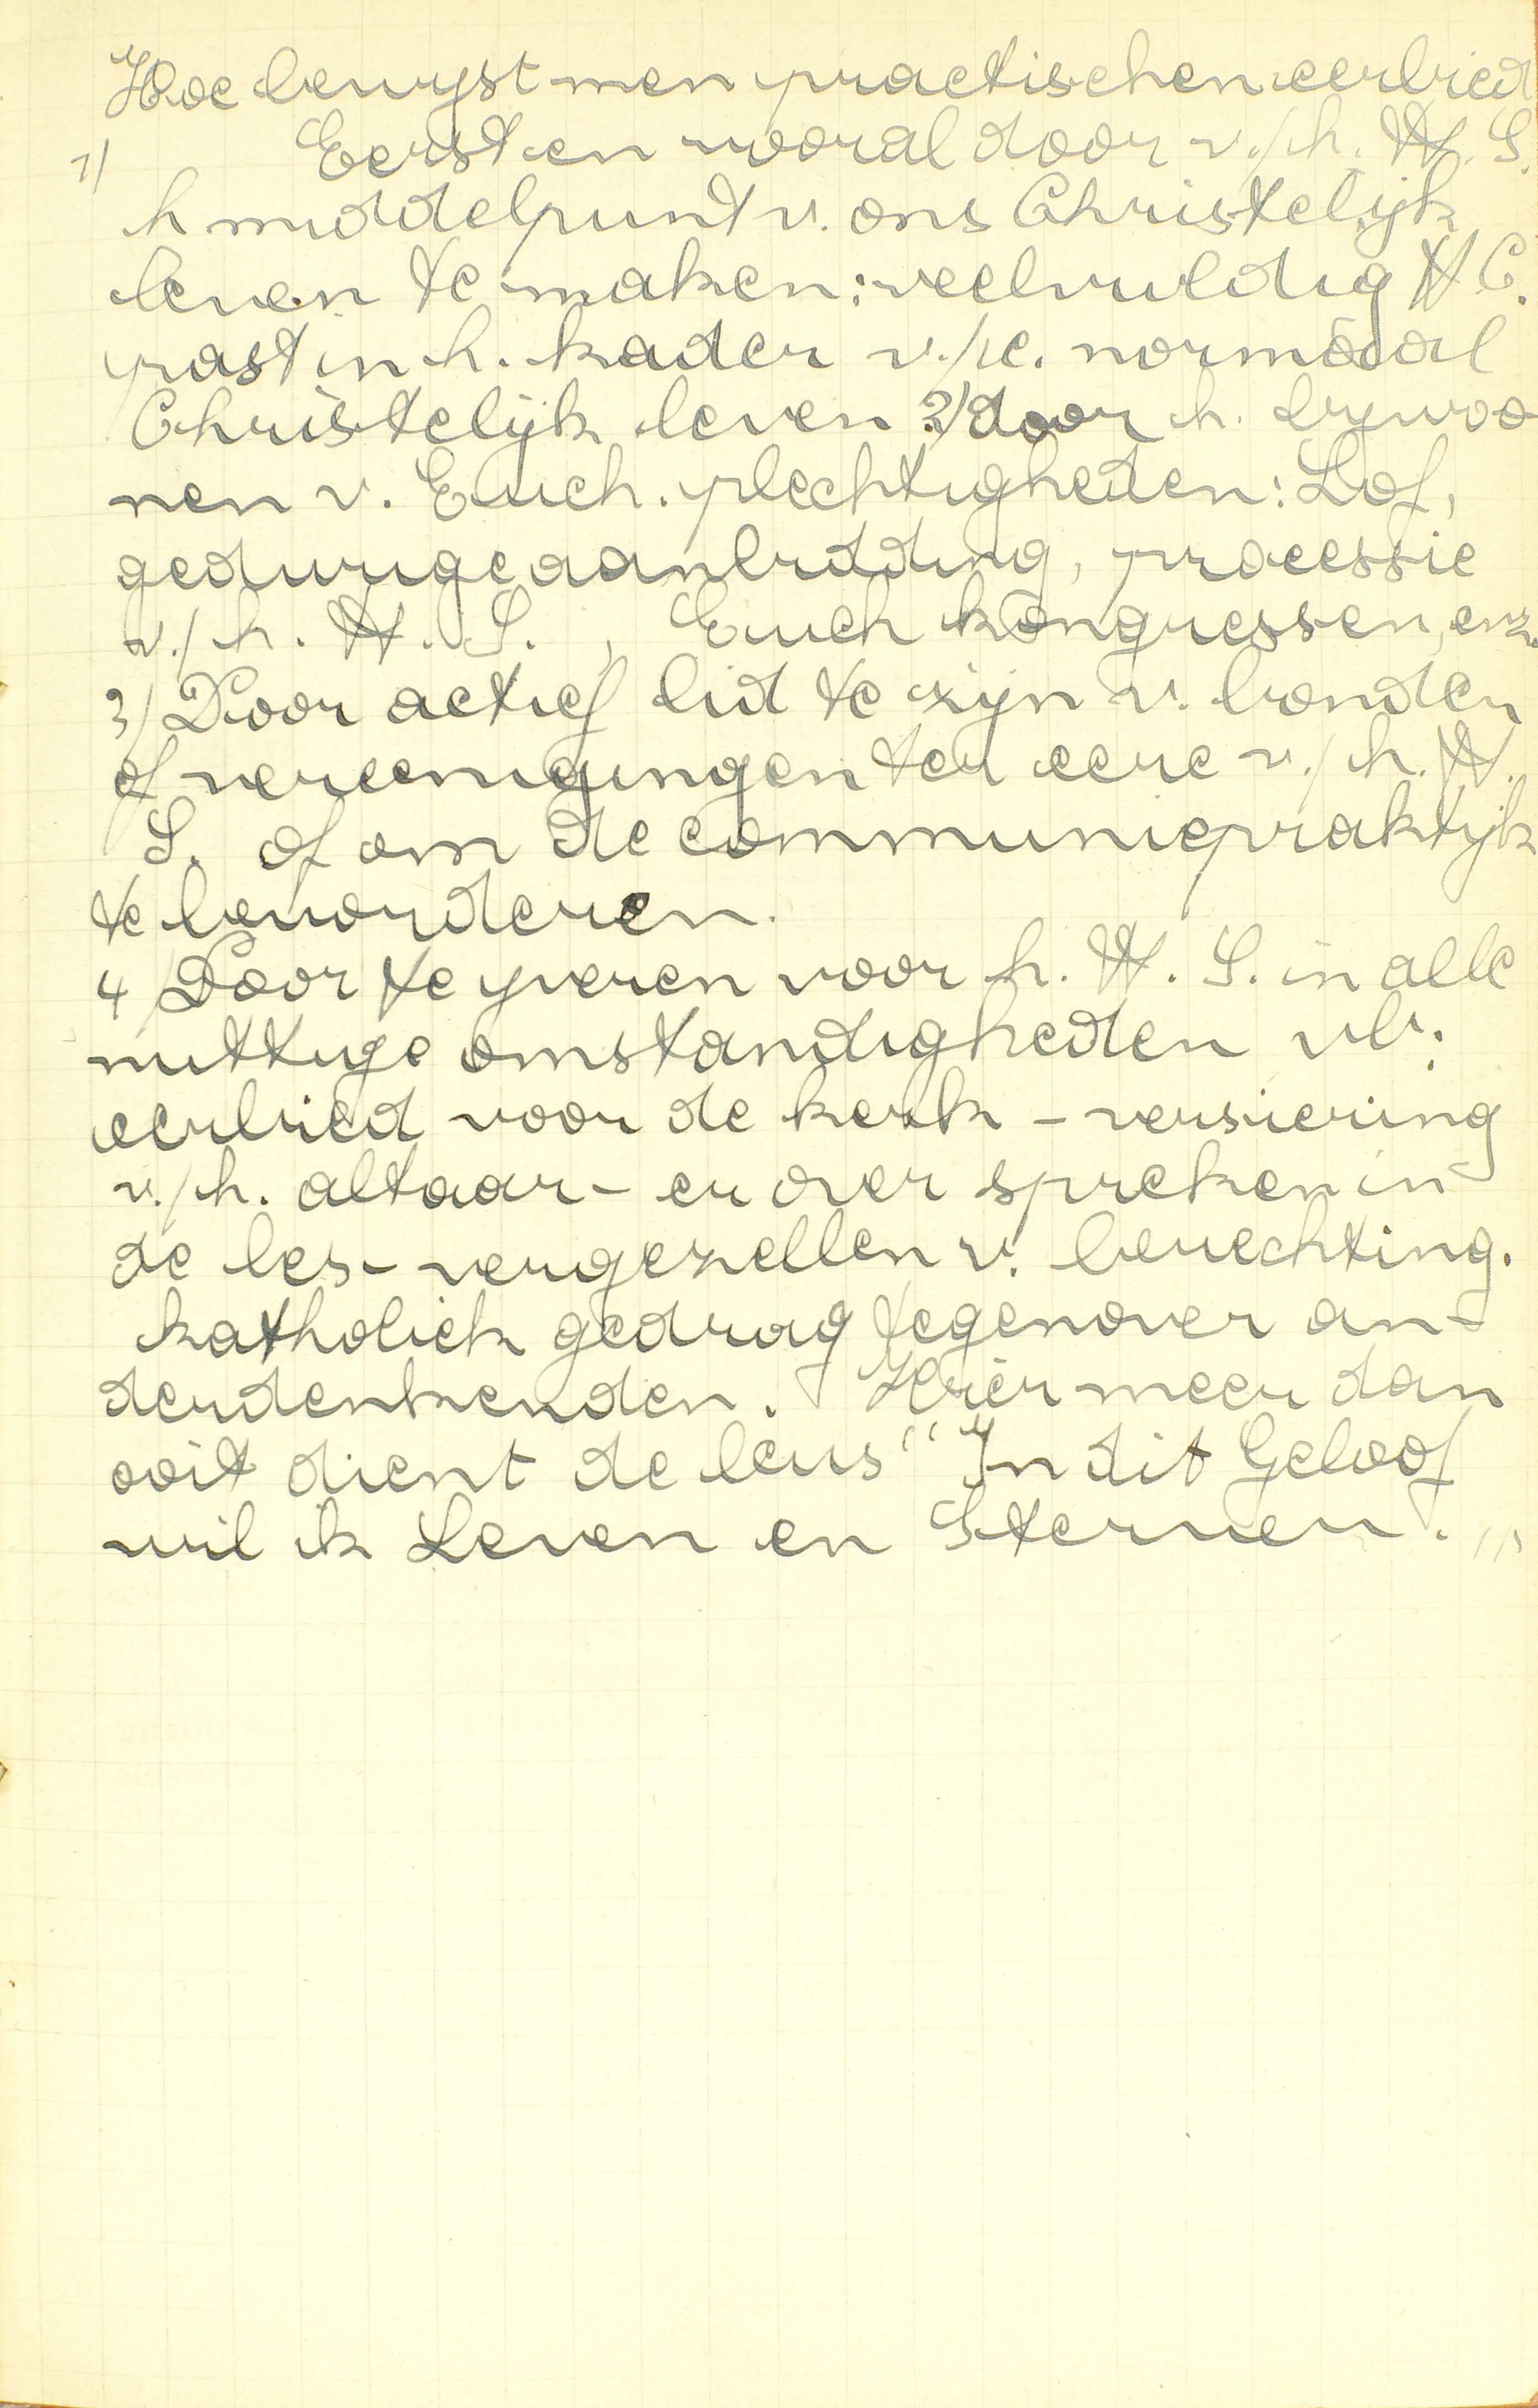 Hoe bewyst men practischen eerbied
1/ Eerst en vooral door v./h. H. S.
h middelpunt v. ons Christelijk
leven te maken: veelvuldig H C.
past in h. kader v./e. normaal
Christelijk leven. 2/ door h. bywoo
nen v. Euch. plechtigheden: Lof,
gedurige aanbidding, processie
v./h. H. S. , Euch kongressen, enz.
3/ Door actief lid te zijn v. bonden
of vereenigingen ter eere v./h. H.
S. of om de communiepraktijk
te bevorderen.
4/ Door te yveren voor h. H. S. in alle
nuttige omstandigheden vb:
eerbied voor de kerk - versiering
v./h. altaar - er over spreken in
de les - vergezellen v. berechting.
katholiek gedrag tegenover an-
derdenkenden. Hier meer dan
ooit dient de leus " In dit Geloof
wil ik Leven en Sterven. "